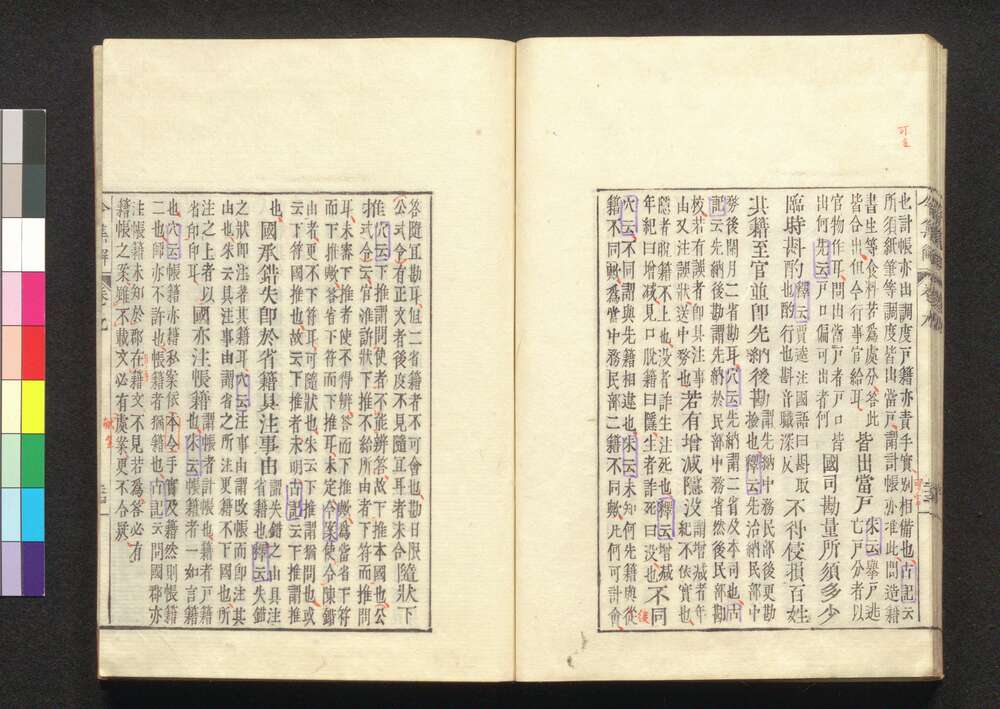 也計帳亦由調度戸籍亦責手實別相備也古記云
所須紙筆等調度皆出當戸謂計帳亦准此問造籍
書生等食料若爲處分答此
皆令出但今行事官給耳
皆出當戸
朱云擧戸逃
亡戸分者以
官物作耳問出當戸者戸口皆
出何先云戸口偏可出者何
國司勘量所須多少
臨時斟酌
釋云賈逵注國語曰斟取
也酌行也斟音職深反
不得侵損百姓
其籍至官並即先納後勘
謂先納中務民部後更勘
撿也釋云先治納民部中
務後閏月二省勘耳穴云先納謂二省及本司也古
記云先納後勘謂先納於民部中務省然後民部勘
校若有謬者即具注事
由又注謬狀送中務也
若有增減隱沒
謂增減者年
紀不依實也
隱者脱籍不上也沒者詐生注死也釋云增減
年紀曰增減見口脱籍曰隱生者詐死曰沒也
不同
穴云不同謂與先籍相違也朱云未知何先籍與從
籍不同歟爲當中務民部二籍不同歟凡何可計會
答隨宜勘耳但二省籍者不可會也勘日限
公式令有正文者後度不見隨宜耳者未合
隨狀下
推
穴云下推謂問使者不能辨答故下推本國也公
式令云官准訴狀下推不給所由者下符而推問
耳未審下推者使不得辨答而下推歟爲當省下符
而下推歟答省下符而下推耳未定令案使令陳錯
由者更不下符耳可隨狀也朱云下推謂猶問也或
云下符國推也故云下推者未明古記云下推謂推
也
國承錯失即於省籍具注事由
謂失錯之由具注
省籍也釋云失錯
之狀即注著其籍耳穴云注事由謂改帳而即注其
由也朱云具注事由謂省之所注更籍不下國也所
注之上者以
省印印耳
國亦注帳籍
謂帳者計帳也籍者戸籍
也朱云帳籍者一如言籍
二也穴云帳籍亦籍私案依本令手實及籍然則帳籍
也師亦不許也帳籍者猶籍也古記云問國郡亦
注帳籍未知於郡在籍文不見若爲答必有
籍帳之案雖不載文必有處案更不合疑